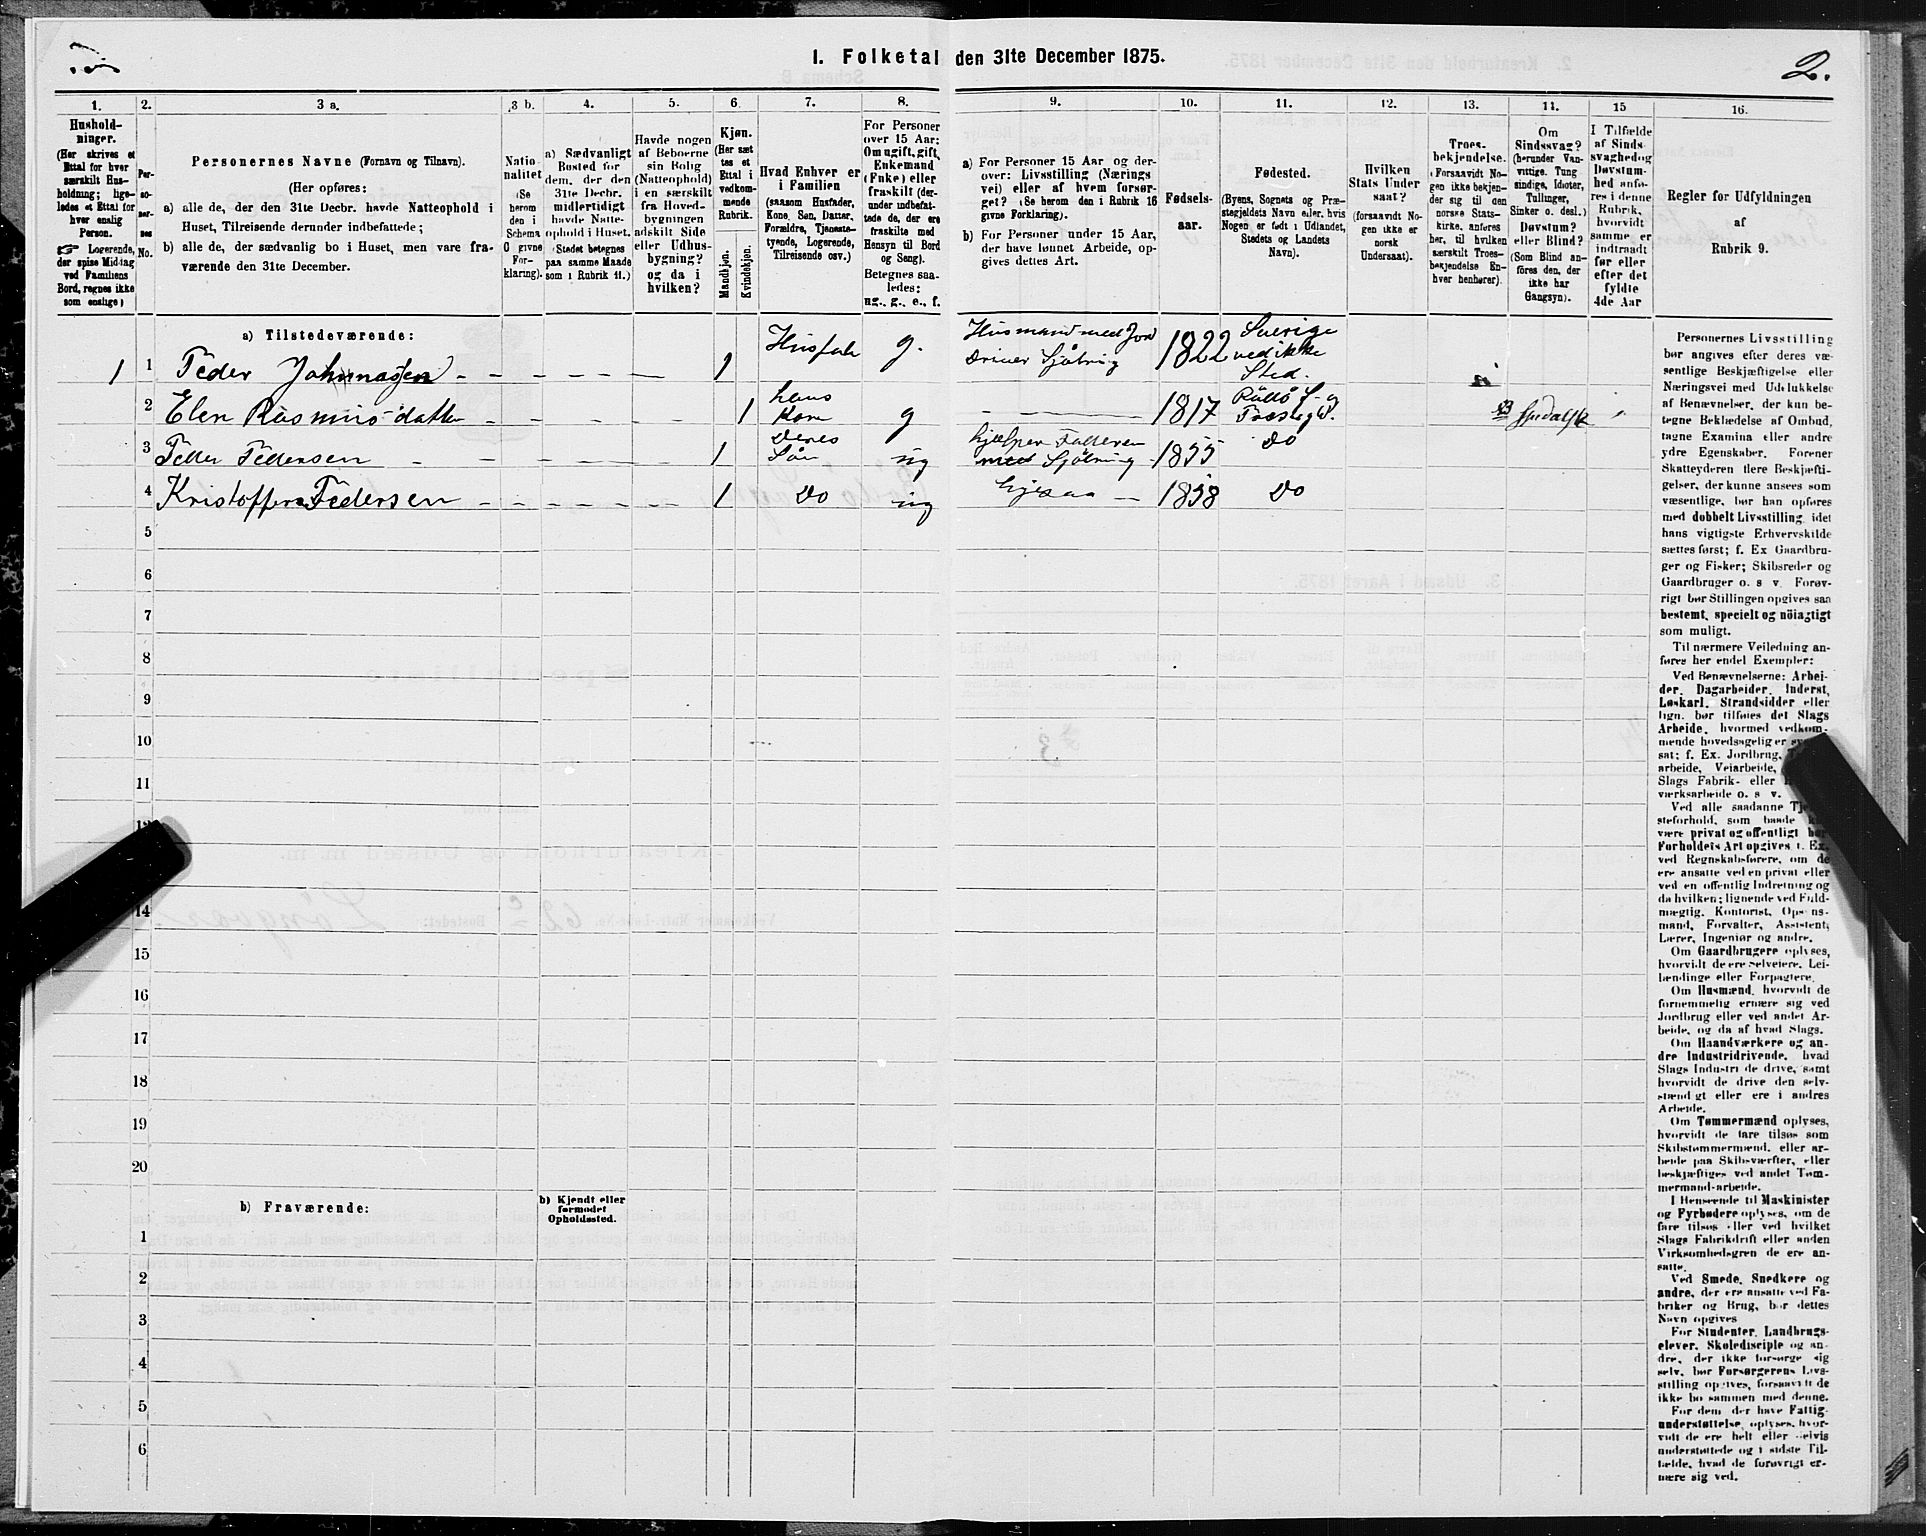 I. Folketal den 31te December 1875.
2.
1.
2.
3 a.
3 b.
4.
5.
6.
7.
8.
9.
10.
11.
12.
13.
14.
15
16.
Hushold-
ninger.
(Her skrives et
Ettal for hver
særskilt Hus-
holdning; lige-
ledes et Ettal for
hver enslig
Person.
☞ Logerende,
der spise Middag
ved Familiens
Bord, regnes ikke
som enslige)
Per-
so-
ner-
nes
No.
Personernes Navne (Fornavn og Tilnavn).
(Her opføres:
a) alle de, der den 31te Decbr. havde Natteophold i
Huset, Tilreisende derunder indbefattede;
b) alle de, der sædvanlig bo i Huset, men vare fra-
værende den 31te December.
Natio-
nalitet
(Se
herom
den i
Schema
O givne
For-
klaring).
a) Sædvanligt
Bosted for
dem, der den
31te Decbr.
midlertidigt
havde Natte-
ophold i Huset.
(Stedet betegnes
paa samme Maade
som i Rubrik 11.)
Havde nogen
af Beboerne
sin Bolig
(Natteophold)
i en særskilt
fra Hoved-
bygningen
adskilt Side
eller Udhus-
bygning?
og da i
hvilken?
Kjøn.
(Her sæt
tes et
Ettal i
vedkom-
mende
Rubrik.
Mandkjøn.
Kvindekjøn.
Hvad Enhver er
i Familien
(saasom Husfader,
Kone, Søn, Datter,
Forældre, Tjeneste-
tyende, Logerende,
Tilreisende osv.)
For Personer
over 15 Aar:
Om ugift, gift,
Enkemand
(Enke) eller
fraskilt (der-
under indbefat-
tede de, der ere
fraskilte med
Hensyn til Bord
og Seng).
Betegnes saa-
ledes:
ug., g., e., f.
a) For Personer 15 Aar og der-
over: Livsstilling (Nærings
vei) eller af hvem forsør-
get? (Se herom den i Rubrik 16
givne Forklaring).
b) For Personer under 15 Aar,
der have lønnet Arbeide, op-
gives dettes Art.
Fødsels-
aar.
Fødested.
(Byens, Sognets og Præ-
stegjeldets Navn eller, hvis
Nogen er født i Udlandet,
Stedets og Landets
Navn).
Hvilken
Stats Under
saat?
(forsaavidt No-
gen ikke er
norsk
Undersaat).
Troes-
bekjendelse.
(Forsaavidt No-
gen ikke bekjen-
der sig til den
norske Stats-
kirke, anføres
her, til hvilken
særskilt Troes-
bekjendelse En-
hver henhører).
Om
Sindssvag?
(herunder Van-
vittige, Tung
sindige, Idioter,
Tullinger,
Sinker o. desl.)
Døvstum?
eller Blind?
(Som Blind an-
føres den, der
ikke har
Gangsyn).
I Tilfælde
af Sinds-
svaghed og
Døvstum-
hed anfø-
res i denne
Rubrik,
hvorvidt
samme er
indtraadt
før eller
efter det
fyldte
4de Aar
Regler for Udfyldningen
af
Rubrik 9.
a) Tilstedeværende:
1 1 Peder Johnnasen 1 Husfad g. Husmand med Jord
driver Sjøbring 1822 Sverige
ved ikke
Sted.
2 Elen Rasmusdatter 1 hans
Kone g 1817 Præstegd.
3 Peder Pedersen 1 Deres
Søn ug hjælper Faderen
med Sjøbring 1855 Do
4 Kristoffer Pedersen 1 Do ug 1858 Do
5
6
7
8
9
10
11
14
15
16
17
18
19
20
b) Fraværende:
b) Kjendt eller
formodet
Opholdssted.
1
2
3
4
5
6
Personernes Livsstilling
bør angives efter deres væ-
sentlige Beskjæftigelse eller
Næringsvei med Udelukkelse
af Benævnelser, der kun be-
tegne Beklædelse af Ombud,
tagne Examina eller andre
ydre Egenskaber. Forener
Skatteyderen flere Beskjæfti-
gelser, der kunne ansees som
væsentlige, bør han opføres
med dobbelt Livsstilling, idet
hans vigtigste Erhvervskilde
sættes først; f. Ex Gaardbru-
ger og Fisker; Skibsreder og
Gaardbruger o. s v. Forøv-
rigt bør Stillingen opgives saa
bestemt, specielt og nöiagtigt
som muligt.
Til nærmere Veiledning an-
føres her endel Exempler:
Ved Benævnelserne: Arbei-
der, Dagarbeider, Inderst,
Løskarl, Strandsidder eller
lign. bør tilføies det Slags
Arbeide, hvormed vedkom-
mende hovedsagelig er
sat; f. Ex. Jordbrug,
arbeide, Veiarbeide,
Slags Fabrik- eller
værksarbeide o. s v.
Ved alle saadanne
steforhold, som baade
være privat og offentligt bør
Forholdets Art opgives f. Ex.
ved Regnskabsførere, om de
ere ansatte ved en privat eller
ved en offentlig Indretning og
da hvilken; lignende ved Fuld-
mægtig, Kontorist, Opsyns-
mand, Forvalter, Assistent,
Lærer, Ingeniør og andre.
Om Gaardbrugere oplyses,
hvorvidt de ere Selveiere, Lei-
lændinge eller Forpagtere.
Om Husmænd, hvorvidt de
fornemmelig ernære sig ved
Jordbrug eller ved andet Ar-
beide, og da af hvad Slags.
Om Haandværkere og an-
dre Industridrivende, hvad
Slags Industri de drive, samt
hvorvidt de drive den selv-
stændigt eller ere i andres
Arbeide.
Om Tømmermænd oplyses,
hvorvidt de fare tilsøs som
Skibstømmermænd, eller ar-
beide paa Skibsværfter, eller
beskjæftiges ved andet Tøm-
mermand-arbeide.
I Henseende til Maskinister
og Fyrbødere oplyses, om de
fare tilsøs eller ved hvilket
Slags Fabrikdrift eller anden
Virksomhedsgren de ere an-
satte.
Ved Smede, Snedkere og
andre, der ere ansatte ved Fa-
briker og Brug, bør dettes
Navn opgives
For Studenter, Landbrugs-
elever, Skoledisciple og an-
dre, der ikke forsørge sig
selv, bør Forsørgerens Livs-
stilling opgives, forsaavidt de
ikke bo sammen med denne.
For dem der have Fattig-
understøttelse, oplyses, hvor-
vidt de ere helt eller delvis
understøttede og i sidste Til-
fælde, hvad de forøvrigt er-
nære sig ved.